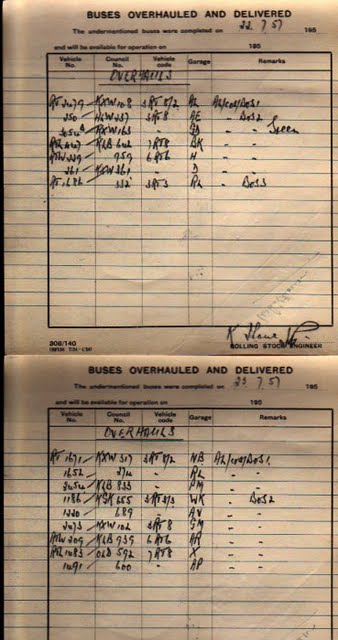 BUSES OVERHAULED AND DELIVERED
The undermentioned buses were completed on 22.7.57 195
and will be available for operation on 195
Vehicle No. Council No. Vehicle code Garage Remarks
OVERHAULS
RT 2479 KXW 108 3RT8/2 AL AL/COS/DOS1
250 HLW 237 3RT8 AE - DOS2
KXW 163 - - - Green
RLB 602 7RT8 BK - -
RTW 229 959 6RT6 H - -
261 KXW 361 - D - -
RT 1686 332 3RT3 RL - DOS3
308/140
ROLLING STOCK ENGINEER
BUSES OVERHAULED AND DELIVERED
The undermentioned buses were completed on 23 7.57 195
and will be available for operation on 195
Vehicle No. Council No. Vehicle code Garage Remarks
OVERHAULS
RT 1671 KXW 317 3RT8/2 NB AL/COS/DOS1
1652 274 - RL - -
KLB 833 - PM - -
1186 KGK 655 3RT3/3 WK - DOS2
1220 689 - AV - -
2473 KXW 102 3RT8 GM - -
RTW 209 KLB 939 6RT6 AR - -
RTL 1083 OLD 592 7RT8 X - -
1091 600 - AP - -